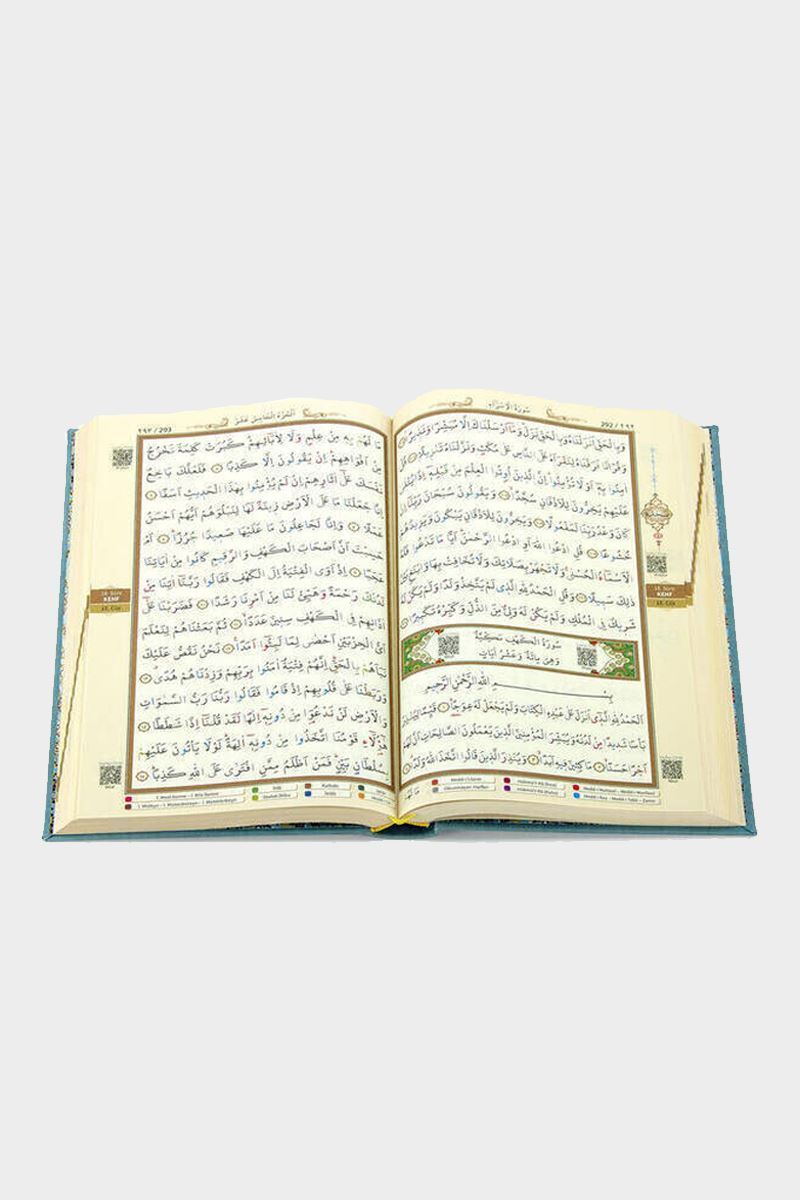 سُورَةُ الْاِسْرَاءِ
292 / ٢٩٢
وَبِالْحَقِّ اَنْزَلْنَاهُ وَبِالْحَقِّ نَزَلَ وَمَا اَرْسَلْنَاكَ اِلَّا مُبَشِّرًا وَنَذِيرًا
وَقُرْاٰنًا فَرَقْنَاهُ لِتَقْرَاَهُ عَلَى النَّاسِ عَلٰى مُكْثٍ وَنَزَّلْنَاهُ تَنْزِيلًا قُلْ
اٰمِنُوا بِهِ اَوْ لَا تُؤْمِنُوا اِنَّ الَّذِينَ اُوتُوا الْعِلْمَ مِنْ قَبْلِهِ اِذَا يُتْلٰى
عَلَيْهِمْ يَخِرُّونَ لِلْاَذْقَانِ سُجَّدًا وَيَقُولُونَ سُبْحَانَ رَبِّنَا اِنْ
كَانَ وَعْدُ رَبِّنَا لَمَفْعُولًا وَيَخِرُّونَ لِلْاَذْقَانِ يَبْكُونَ وَيَزِيدُهُمْ
خُشُوعًا قُلِ ادْعُوا اللّٰهَ اَوِ ادْعُوا الرَّحْمٰنَ اَيًّا مَا تَدْعُوا فَلَهُ
الْاَسْمَاءُ الْحُسْنٰى وَلَا تَجْهَرْ بِصَلَاتِكَ وَلَا تُخَافِتْ بِهَا وَابْتَغِ بَيْنَ
ذٰلِكَ سَبِيلًا وَقُلِ الْحَمْدُ لِلّٰهِ الَّذِى لَمْ يَتَّخِذْ وَلَدًا وَلَمْ يَكُنْ لَهُ
شَرِيكٌ فِى الْمُلْكِ وَلَمْ يَكُنْ لَهُ وَلِىٌّ مِنَ الذُّلِّ وَكَبِّرْهُ تَكْبِيرًا
سُورَةُ الْكَهْفِ مَكِّيَّةٌ
وَهِىَ مِائَةٌ وَعَشْرُ اٰيَاتٍ
بِسْمِ اللّٰهِ الرَّحْمٰنِ الرَّحِيمِ
اَلْحَمْدُ لِلّٰهِ الَّذِى اَنْزَلَ عَلٰى عَبْدِهِ الْكِتَابَ وَلَمْ يَجْعَلْ لَهُ عِوَجًا قَيِّمًا لِيُنْذِرَ
بَاْسًا شَدِيدًا مِنْ لَدُنْهُ وَيُبَشِّرَ الْمُؤْمِنِينَ الَّذِينَ يَعْمَلُونَ الصَّالِحَاتِ اَنَّ لَهُمْ
اَجْرًا حَسَنًا مَاكِثِينَ فِيهِ اَبَدًا وَيُنْذِرَ الَّذِينَ قَالُوا اتَّخَذَ اللّٰهُ وَلَدًا
18. Sûre
KEHF
15. Cüz
اَلْجُزْءُ الْخَامِسُ عَشَرَ
٢٩٣ / 293
مَا لَهُمْ بِهِ مِنْ عِلْمٍ وَلَا لِاٰبَائِهِمْ كَبُرَتْ كَلِمَةً تَخْرُجُ
مِنْ اَفْوَاهِهِمْ اِنْ يَقُولُونَ اِلَّا كَذِبًا فَلَعَلَّكَ بَاخِعٌ
نَفْسَكَ عَلٰى اٰثَارِهِمْ اِنْ لَمْ يُؤْمِنُوا بِهٰذَا الْحَدِيثِ اَسَفًا
اِنَّا جَعَلْنَا مَا عَلَى الْاَرْضِ زِينَةً لَهَا لِنَبْلُوَهُمْ اَيُّهُمْ اَحْسَنُ
عَمَلًا وَاِنَّا لَجَاعِلُونَ مَا عَلَيْهَا صَعِيدًا جُرُزًا اَمْ
حَسِبْتَ اَنَّ اَصْحَابَ الْكَهْفِ وَالرَّقِيمِ كَانُوا مِنْ اٰيَاتِنَا
عَجَبًا اِذْ اَوَى الْفِتْيَةُ اِلَى الْكَهْفِ فَقَالُوا رَبَّنَا اٰتِنَا مِنْ
لَدُنْكَ رَحْمَةً وَهَيِّئْ لَنَا مِنْ اَمْرِنَا رَشَدًا فَضَرَبْنَا عَلٰى
اٰذَانِهِمْ فِى الْكَهْفِ سِنِينَ عَدَدًا ثُمَّ بَعَثْنَاهُمْ لِنَعْلَمَ
اَىُّ الْحِزْبَيْنِ اَحْصٰى لِمَا لَبِثُوا اَمَدًا نَحْنُ نَقُصُّ عَلَيْكَ
نَبَاَهُمْ بِالْحَقِّ اِنَّهُمْ فِتْيَةٌ اٰمَنُوا بِرَبِّهِمْ وَزِدْنَاهُمْ هُدًى
وَرَبَطْنَا عَلٰى قُلُوبِهِمْ اِذْ قَامُوا فَقَالُوا رَبُّنَا رَبُّ السَّمٰوَاتِ
وَالْاَرْضِ لَنْ نَدْعُوَ مِنْ دُونِهِ اِلٰهًا لَقَدْ قُلْنَا اِذًا شَطَطًا
هٰؤُلَاءِ قَوْمُنَا اتَّخَذُوا مِنْ دُونِهِ اٰلِهَةً لَوْلَا يَاْتُونَ عَلَيْهِمْ
بِسُلْطَانٍ بَيِّنٍ فَمَنْ اَظْلَمُ مِمَّنِ افْتَرٰى عَلَى اللّٰهِ كَذِبًا
18. Sûre
KEHF
15. Cüz